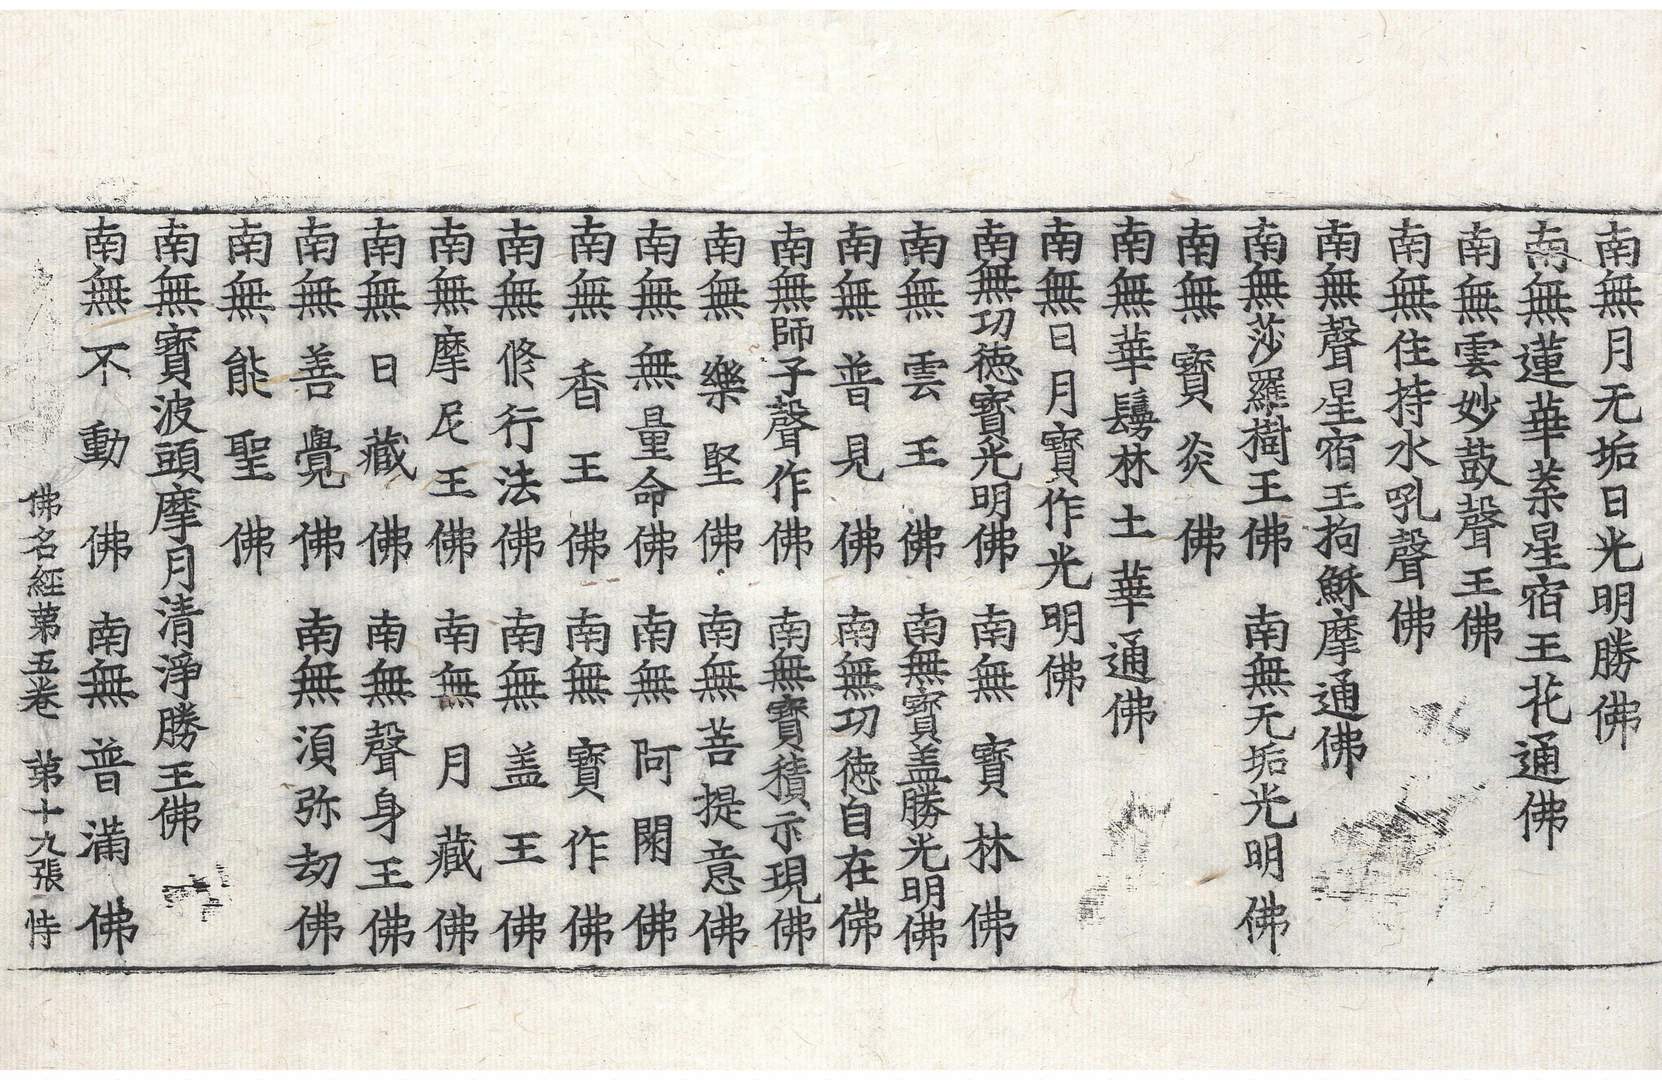 南無月无垢日光明勝佛
南無蓮華葉星宿王花通佛
南無雲妙鼓聲王佛
南無住持水吼聲佛
南無聲星宿王拘穌摩通佛
南無莎羅樹王佛　南無无垢光明佛
南無寶炎佛
南無華鬘林土華通佛
南無日月寶作光明佛
南無功徳寶光明佛　南無寶林佛
南無雲王佛　南無寶盖勝光明佛
南無普見佛　南無功徳自在佛
南無師子聲作佛　南無寶積示現佛
南無樂堅佛　南無菩提意佛
南無無量命佛　南無阿閦佛
南無香王佛　南無寶作佛
南無修行法佛　南無盖王佛
南無摩尼王佛　南無月藏佛
南無日藏佛　南無聲身王佛
南無善覺佛　南無湏弥劫佛
南無能聖佛
南無寶波頭摩月清淨勝王佛
南無不動佛　南無普滿佛
佛名經苐五卷　苐十九張　恃